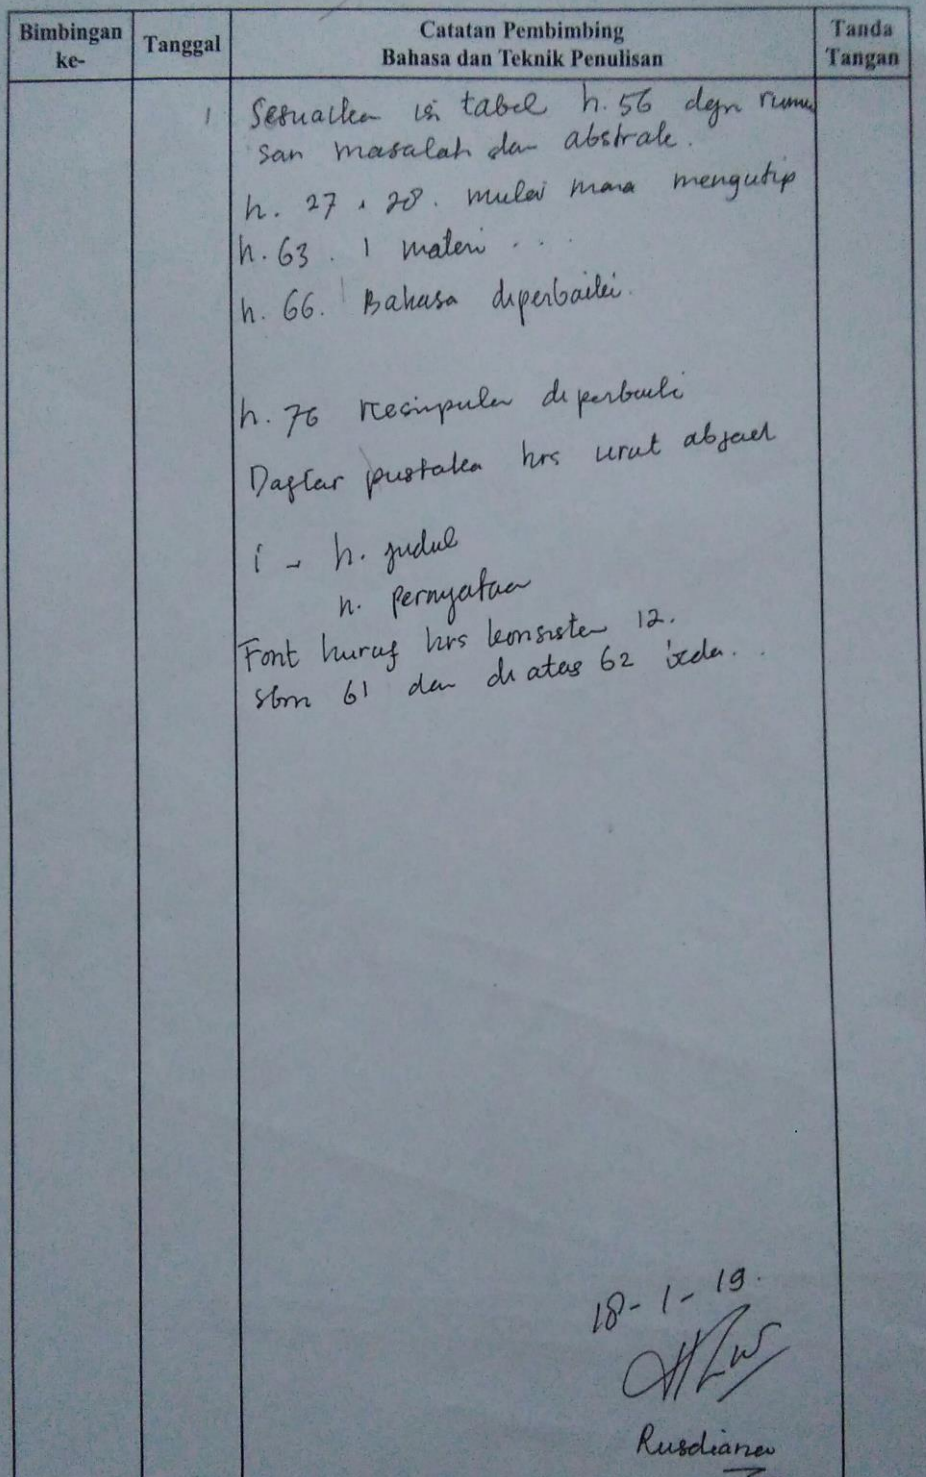 Bimbingan ke-
Tanggal
Catatan Pembimbing
Bahasa dan Teknik Penulisan
Tanda Tangan
1
Sesuaikan isi tabel h. 56 dgn rumu
san masalah dan abstrak.
h. 27, 28. mulai mana mengutip
h. 63. 1 materi ...
h. 66. Bahasa diperbaiki.
h. 76 Kesimpulan diperbaiki
Daftar pustaka hrs urut abjad
i - h. judul
h. Pernyataan
Font huruf hrs konsisten 12.
sbm 61 dan di atas 62 beda..
18-1-19.
Rusdiana